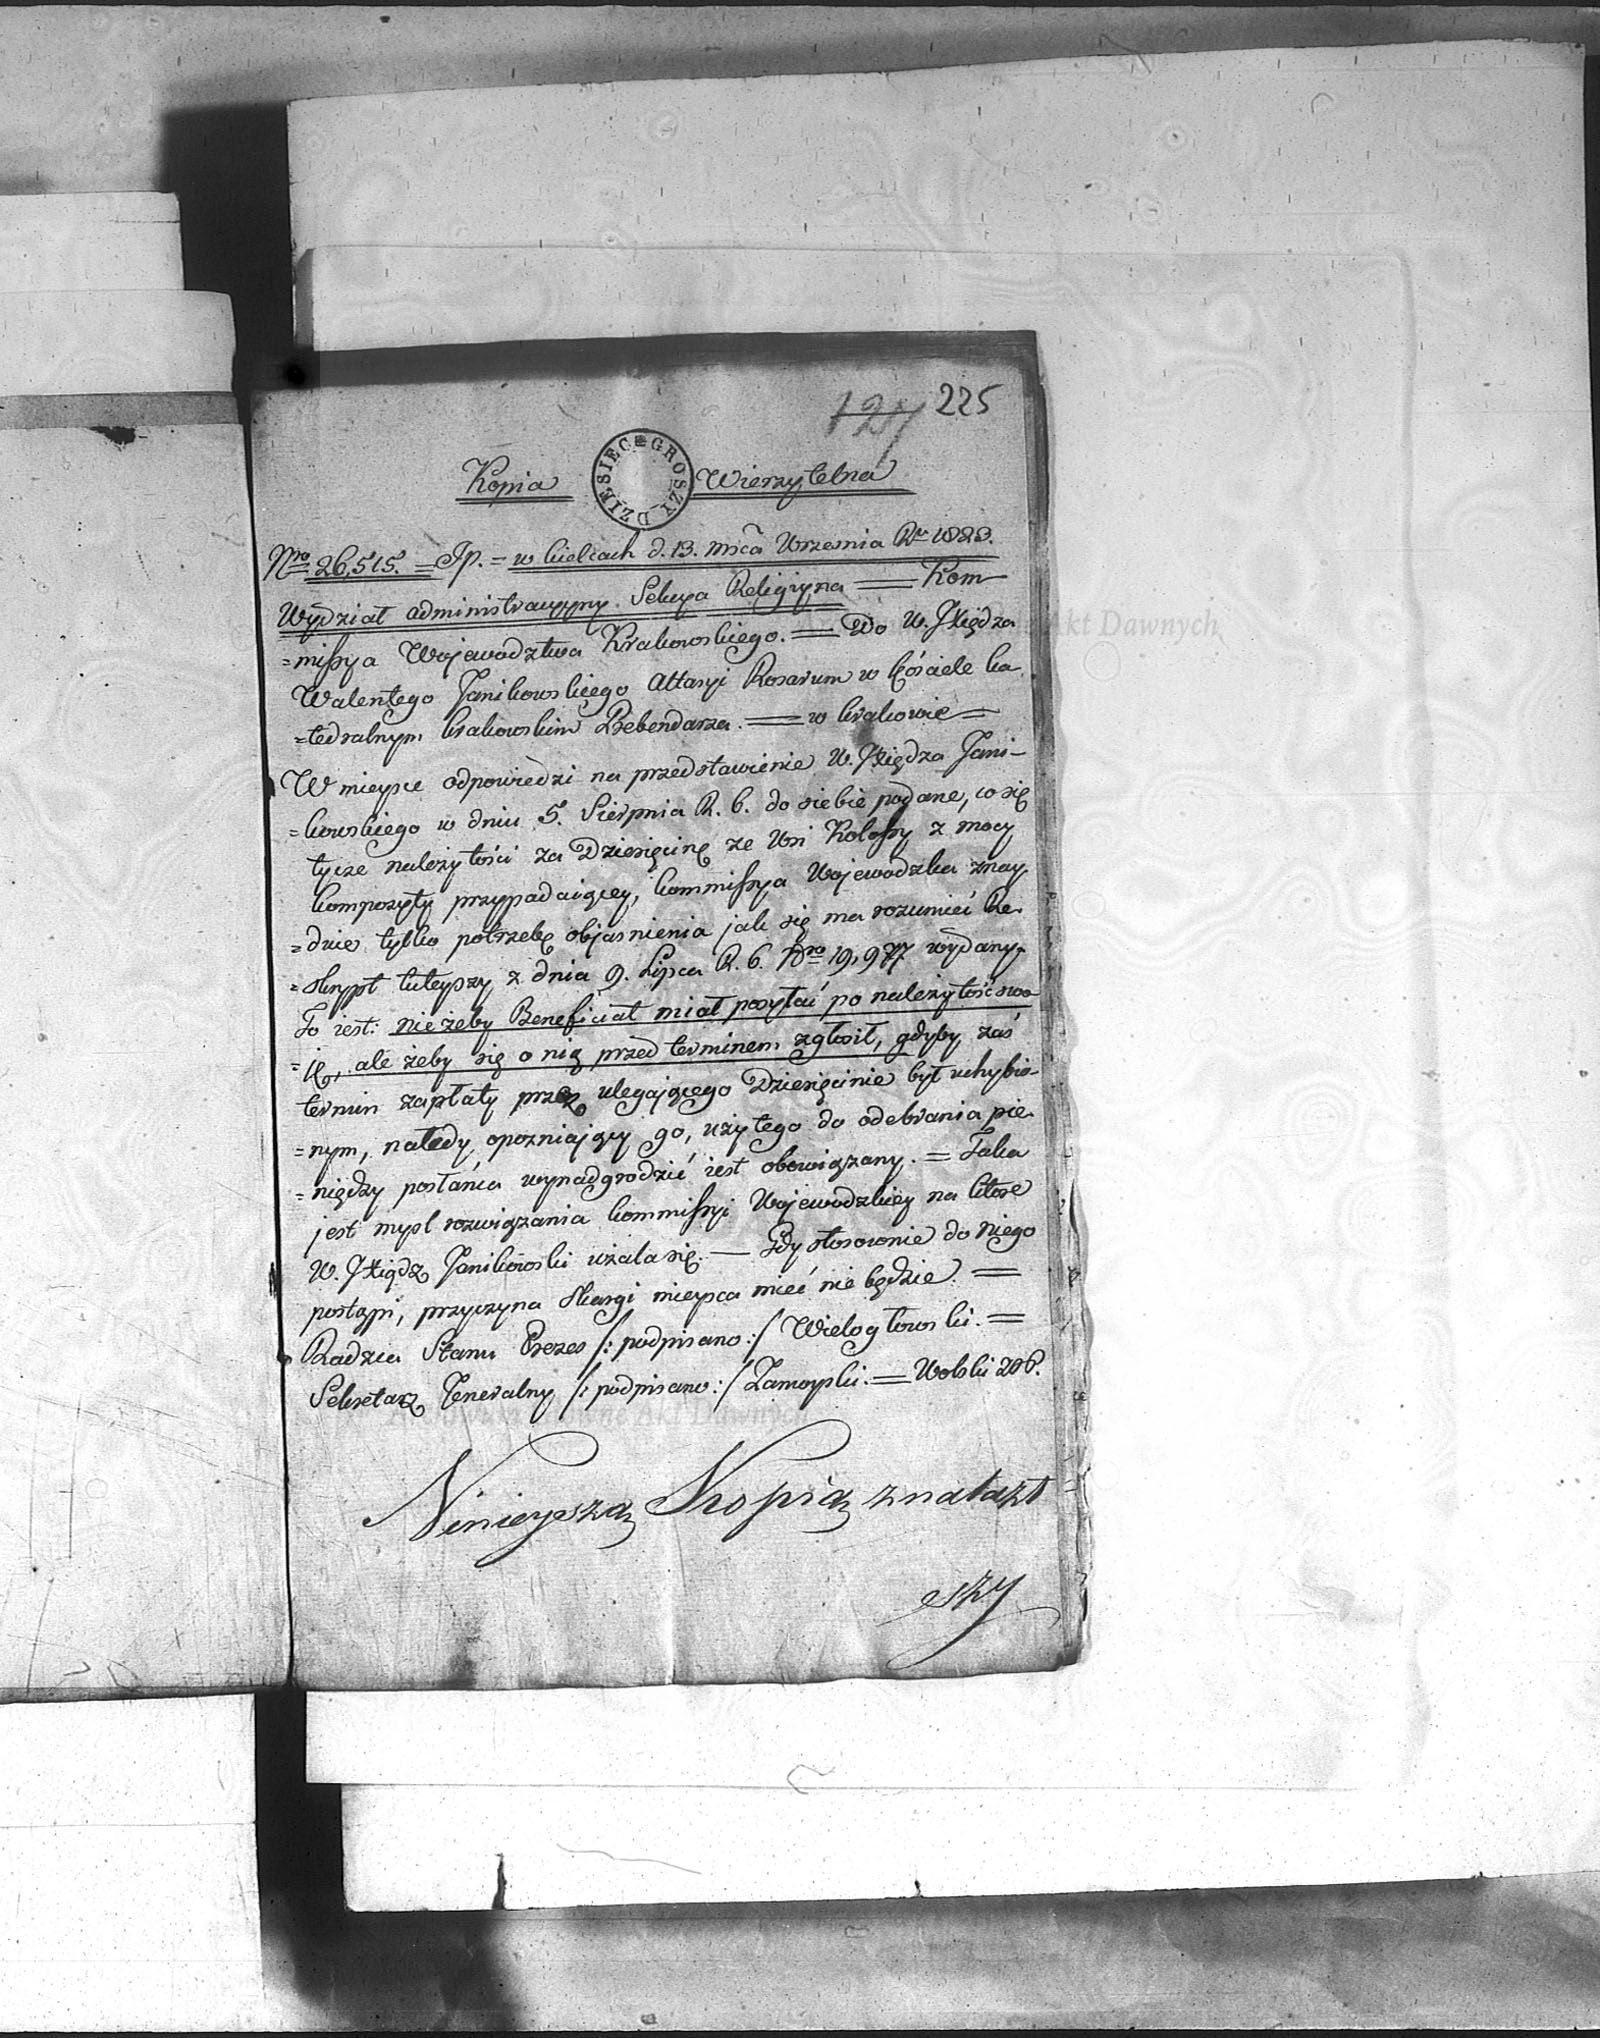 127 225
Kopia DZIESIĘC GROSZY Wierzytelna
Nro 26,515. = Jp. = w Kielcach d. 13. Mca Września Ru 1823.
Wydział administracyyny. Sekcya Religiyna = Kom
=missya Województwa Krakowskiego. = Do W. JXiędza
Walentego Janikowskiego Altaryi Rosarum w Kościele Ka
=tedralnym Krakowskim Prebendarza. = w Krakowie =
W mieysce odpowiedzi na przedstawienie W. JXiędza Jani-
=kowskiego w dniu 5. Sierpnia R. b. do siebie podane, co się
tycze należytości za Dziesięcinę ze Wsi Kolossy z mocy
Kompozyty przypadaiącey, Kommissya Wojewodzka znay
=dzie tylko potrzebę objasnienia jak się ma rozumieć Re
=skrypt tuteyszy z dnia 9. Lipca R. b. Nro 19,977 wydany,
To iest: nie żeby Beneficiat miał posyłać po należytość swo
=ię, ale żeby się o nią przed terminem zgłosił, gdyby zaś
termin zapłaty przez ulegającego Dziesięcinie był uchybio-
=nym, natedy opozniający go, użytego do odebrania pie
=niędzy posłańca wynadgrodzić iest obowiązany. = Taka
jest mysl rozwiązania Kommissyi Wojewodzkiey na które
W. JXiądz Janikowski użala się. — Gdy stosownie do niego
postąpi, przyczyna skargi mieysca mieć nie będzie. =
Radzca Stanu Prezes /: podpisano :/ Wielogłowski. =
Sekretarz Jeneralny /: podpisano :/ Zamoyski. = Wolski
Ninieyszą Kopią znalazł
szy
Akt Dawnych
Archiwum Główne Akt Dawnych